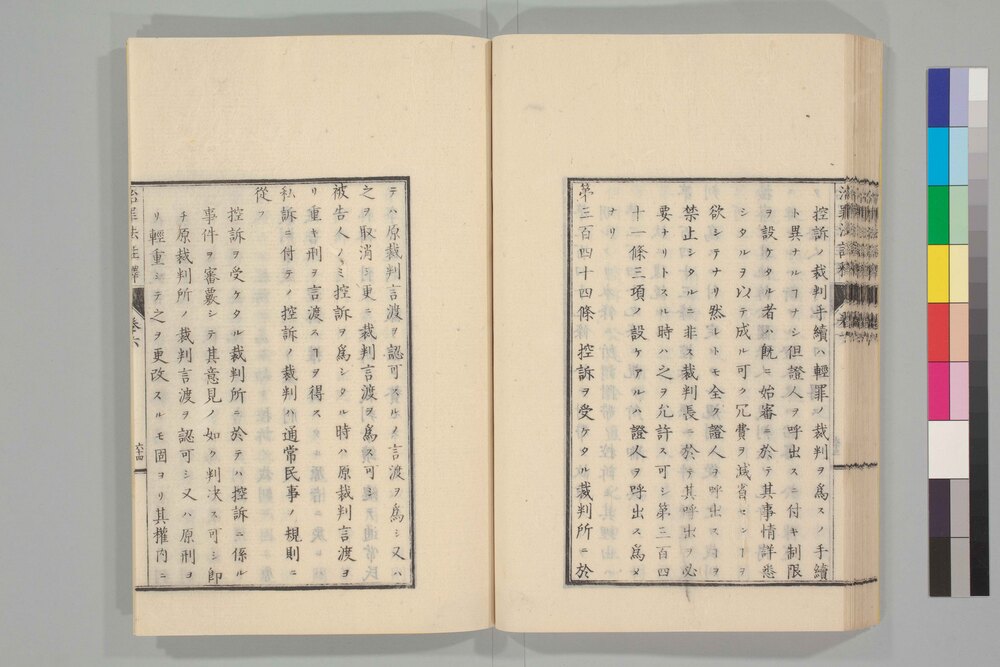 控訴ノ裁判手續ハ輕罪ノ裁判ヲ爲スノ手續
ト異ナルヿナシ但證人ヲ呼出スニ付キ制限
ヲ設ケタル者ハ既ニ始審ニ於テ其事情詳悉
シタルヲ以テ成ル可ク冗費ヲ减省センヿヲ
欲シテナリ然レトモ全ク證人ヲ呼出スヿヲ
禁止シタルニ非ス裁判長ニ於テ其呼出ヲ必
要ナリトスル時ハ之ヲ允許ス可シ第三百四
十一條三項ノ設ケアルハ證人ヲ呼出ス爲メ
ナリ
第三百四十四條控訴ヲ受ケタル裁判所ニ於
テハ原裁判言渡ヲ認可スルノ言渡ヲ爲シ又ハ
之ヲ取消シ更ニ裁判言渡ヲ爲ス可シ
被告人ノミ控訴ヲ爲シタル時ハ原裁判言渡ヨ
リ重キ刑ヲ言渡スヿヲ得ス
私訴ニ付テノ控訴ノ裁判ハ通常民事ノ規則ニ
從フ
控訴ヲ受ケタル裁判所ニ於テハ控訴ニ係ル
事件ヲ審覈シテ其意見ノ如ク判决ス可シ即
チ原裁判所ノ裁判言渡ヲ認可シ又ハ原刑ヨ
リ輕重シテ之ヲ更改スルモ固ヨリ其權内ニ
治罪法註釋
卷六
六十四